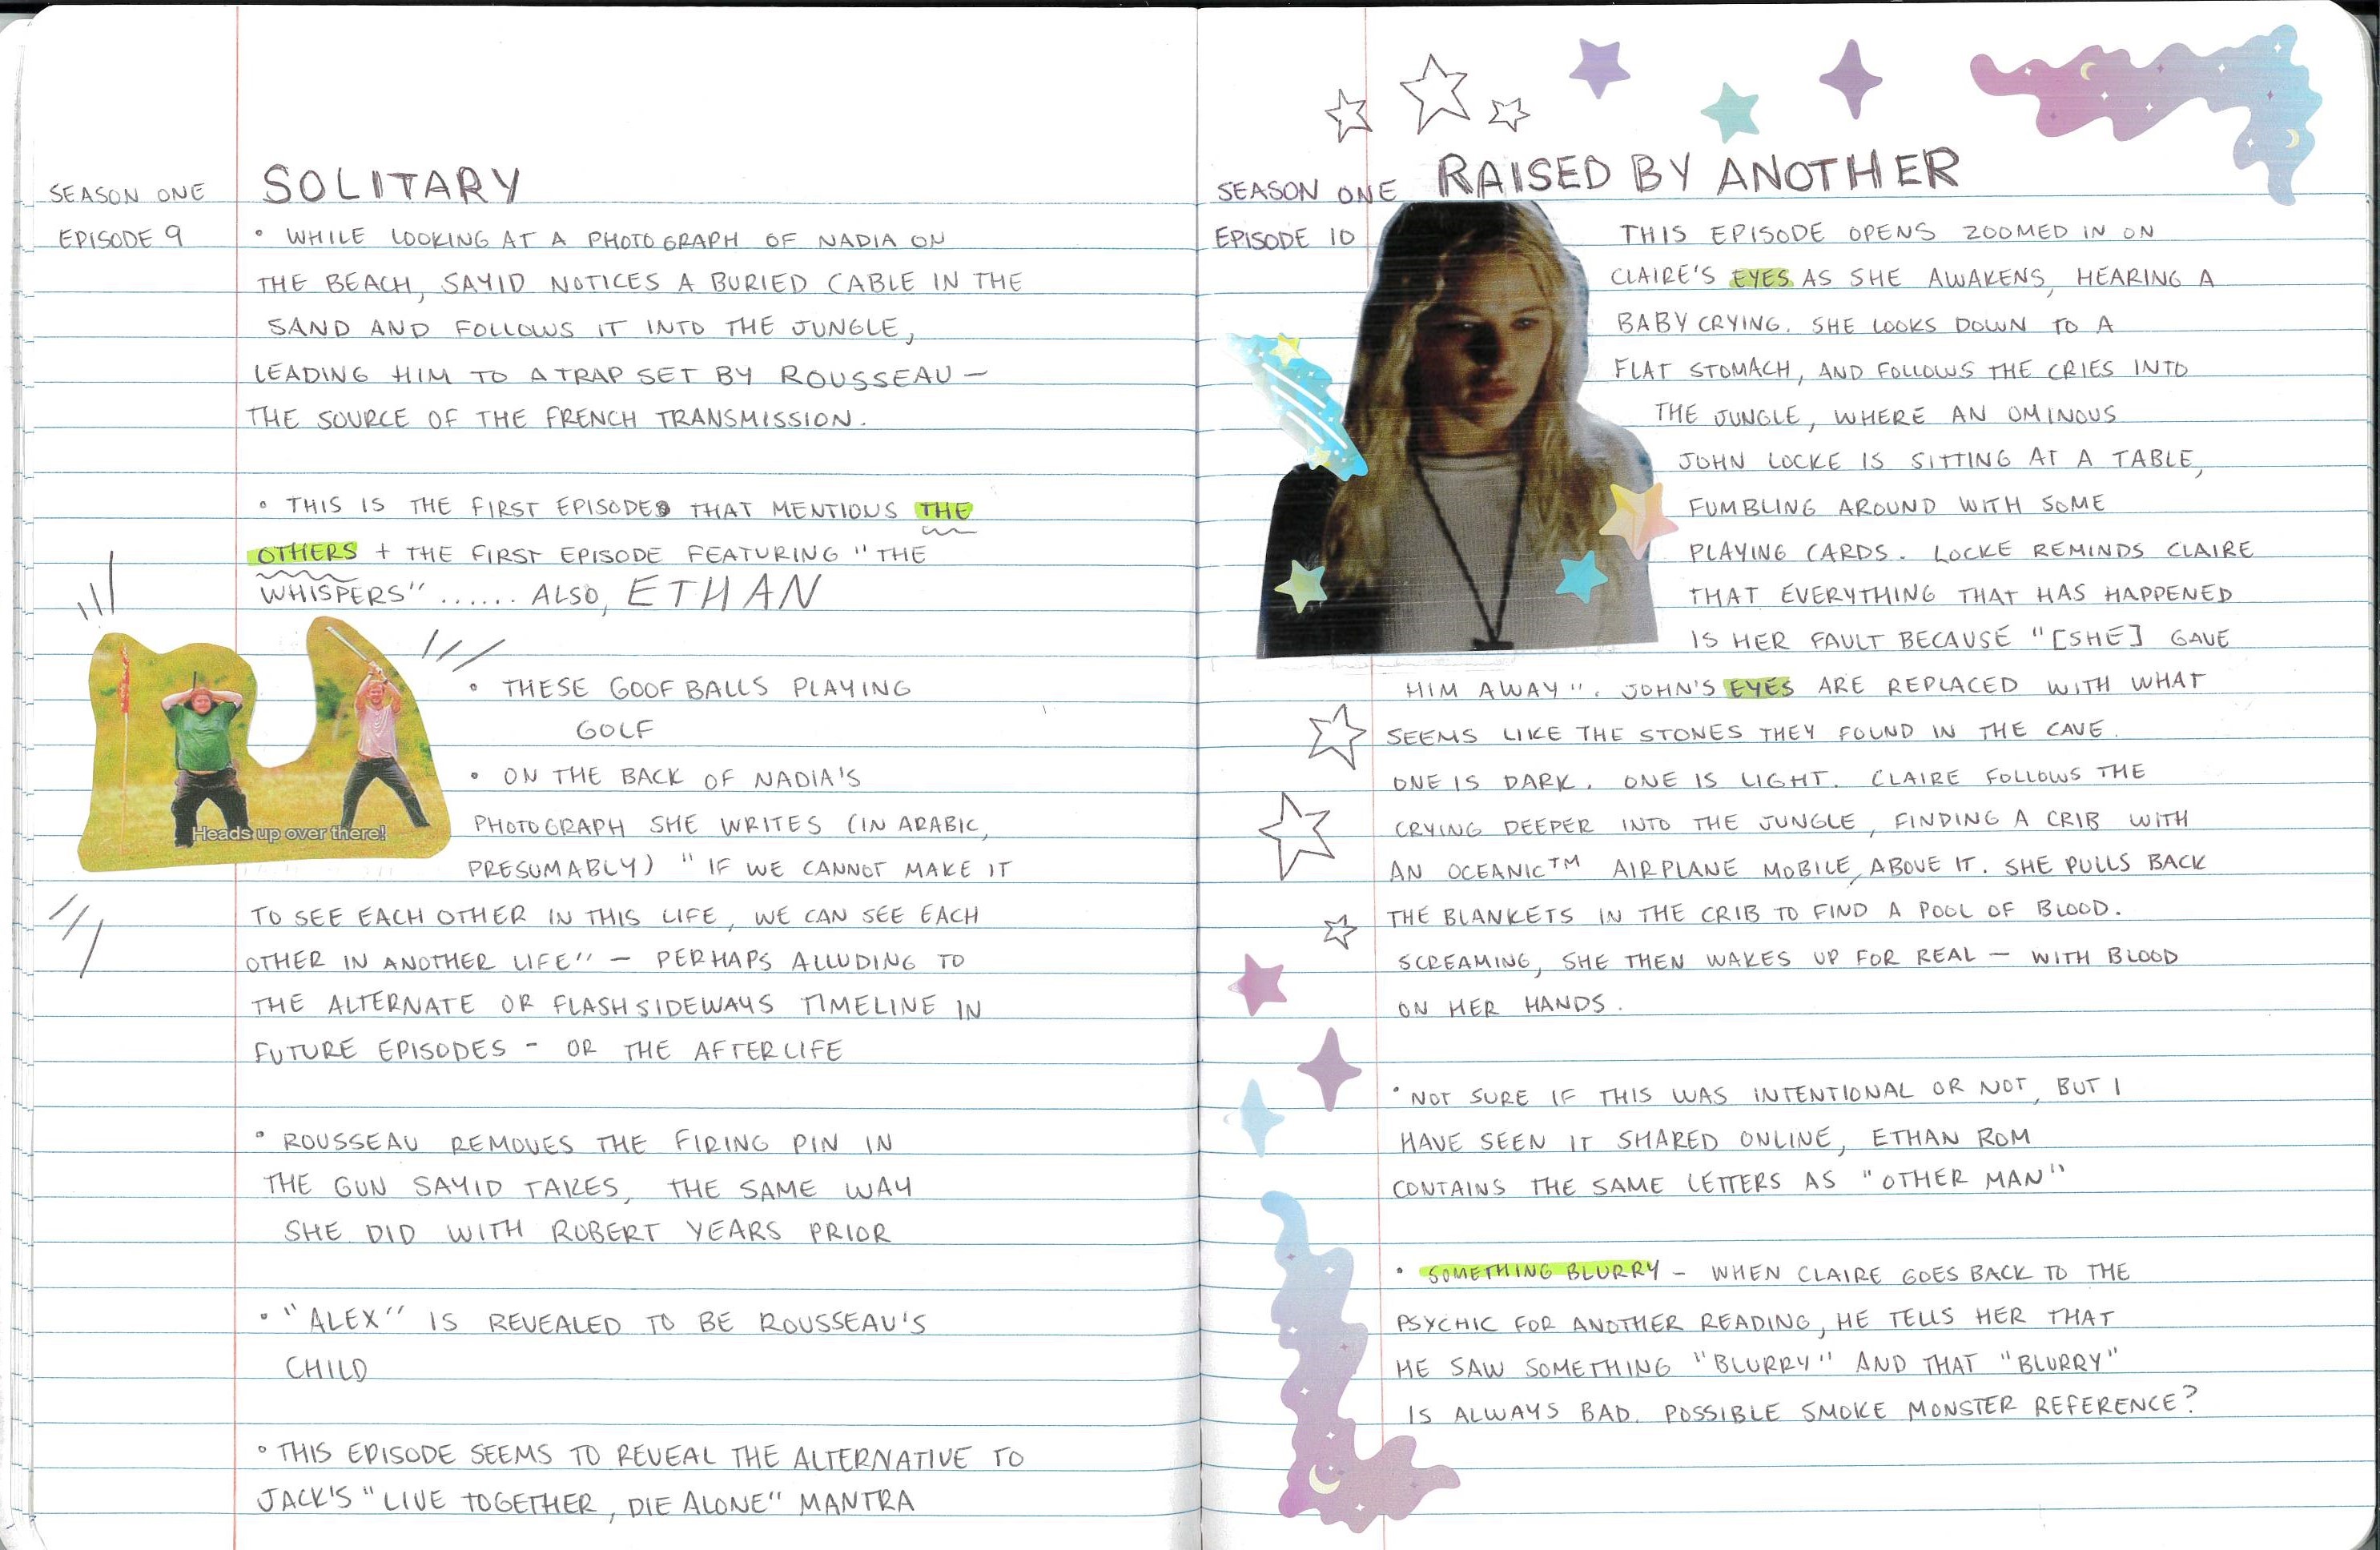 SEASON ONE
EPISODE 9
SOLITARY
• WHILE LOOKING AT A PHOTOGRAPH OF NADIA ON
THE BEACH, SAYID NOTICES A BURIED CABLE IN THE
SAND AND FOLLOWS IT INTO THE JUNGLE,
LEADING HIM TO A TRAP SET BY ROUSSEAU —
THE SOURCE OF THE FRENCH TRANSMISSION.
• THIS IS THE FIRST EPISODE THAT MENTIONS THE
OTHERS + THE FIRST EPISODE FEATURING "THE
WHISPERS" ...... ALSO, ETHAN
• THESE GOOFBALLS PLAYING
GOLF
Heads up over there!
• ON THE BACK OF NADIA'S
PHOTOGRAPH SHE WRITES (IN ARABIC,
PRESUMABLY) "IF WE CANNOT MAKE IT
TO SEE EACH OTHER IN THIS LIFE, WE CAN SEE EACH
OTHER IN ANOTHER LIFE" — PERHAPS ALLUDING TO
THE ALTERNATE OR FLASHSIDEWAYS TIMELINE IN
FUTURE EPISODES - OR THE AFTERLIFE
• ROUSSEAU REMOVES THE FIRING PIN IN
THE GUN SAYID TAKES, THE SAME WAY
SHE DID WITH ROBERT YEARS PRIOR
• "ALEX" IS REVEALED TO BE ROUSSEAU'S
CHILD
• THIS EPISODE SEEMS TO REVEAL THE ALTERNATIVE TO
JACK'S "LIVE TOGETHER, DIE ALONE" MANTRA
SEASON ONE
EPISODE 10
RAISED BY ANOTHER
THIS EPISODE OPENS ZOOMED IN ON
CLAIRE'S EYES AS SHE AWAKENS, HEARING A
BABY CRYING. SHE LOOKS DOWN TO A
FLAT STOMACH, AND FOLLOWS THE CRIES INTO
THE JUNGLE, WHERE AN OMINOUS
JOHN LOCKE IS SITTING AT A TABLE,
FUMBLING AROUND WITH SOME
PLAYING CARDS. LOCKE REMINDS CLAIRE
THAT EVERYTHING THAT HAS HAPPENED
IS HER FAULT BECAUSE "[SHE] GAVE
HIM AWAY". JOHN'S EYES ARE REPLACED WITH WHAT
SEEMS LIKE THE STONES THEY FOUND IN THE CAVE.
ONE IS DARK. ONE IS LIGHT. CLAIRE FOLLOWS THE
CRYING DEEPER INTO THE JUNGLE, FINDING A CRIB WITH
AN OCEANIC™ AIRPLANE MOBILE ABOVE IT. SHE PULLS BACK
THE BLANKETS IN THE CRIB TO FIND A POOL OF BLOOD.
SCREAMING, SHE THEN WAKES UP FOR REAL — WITH BLOOD
ON HER HANDS.
• NOT SURE IF THIS WAS INTENTIONAL OR NOT, BUT I
HAVE SEEN IT SHARED ONLINE, ETHAN ROM
CONTAINS THE SAME LETTERS AS "OTHER MAN"
• SOMETHING BLURRY — WHEN CLAIRE GOES BACK TO THE
PSYCHIC FOR ANOTHER READING, HE TELLS HER THAT
HE SAW SOMETHING "BLURRY" AND THAT "BLURRY"
IS ALWAYS BAD. POSSIBLE SMOKE MONSTER REFERENCE?